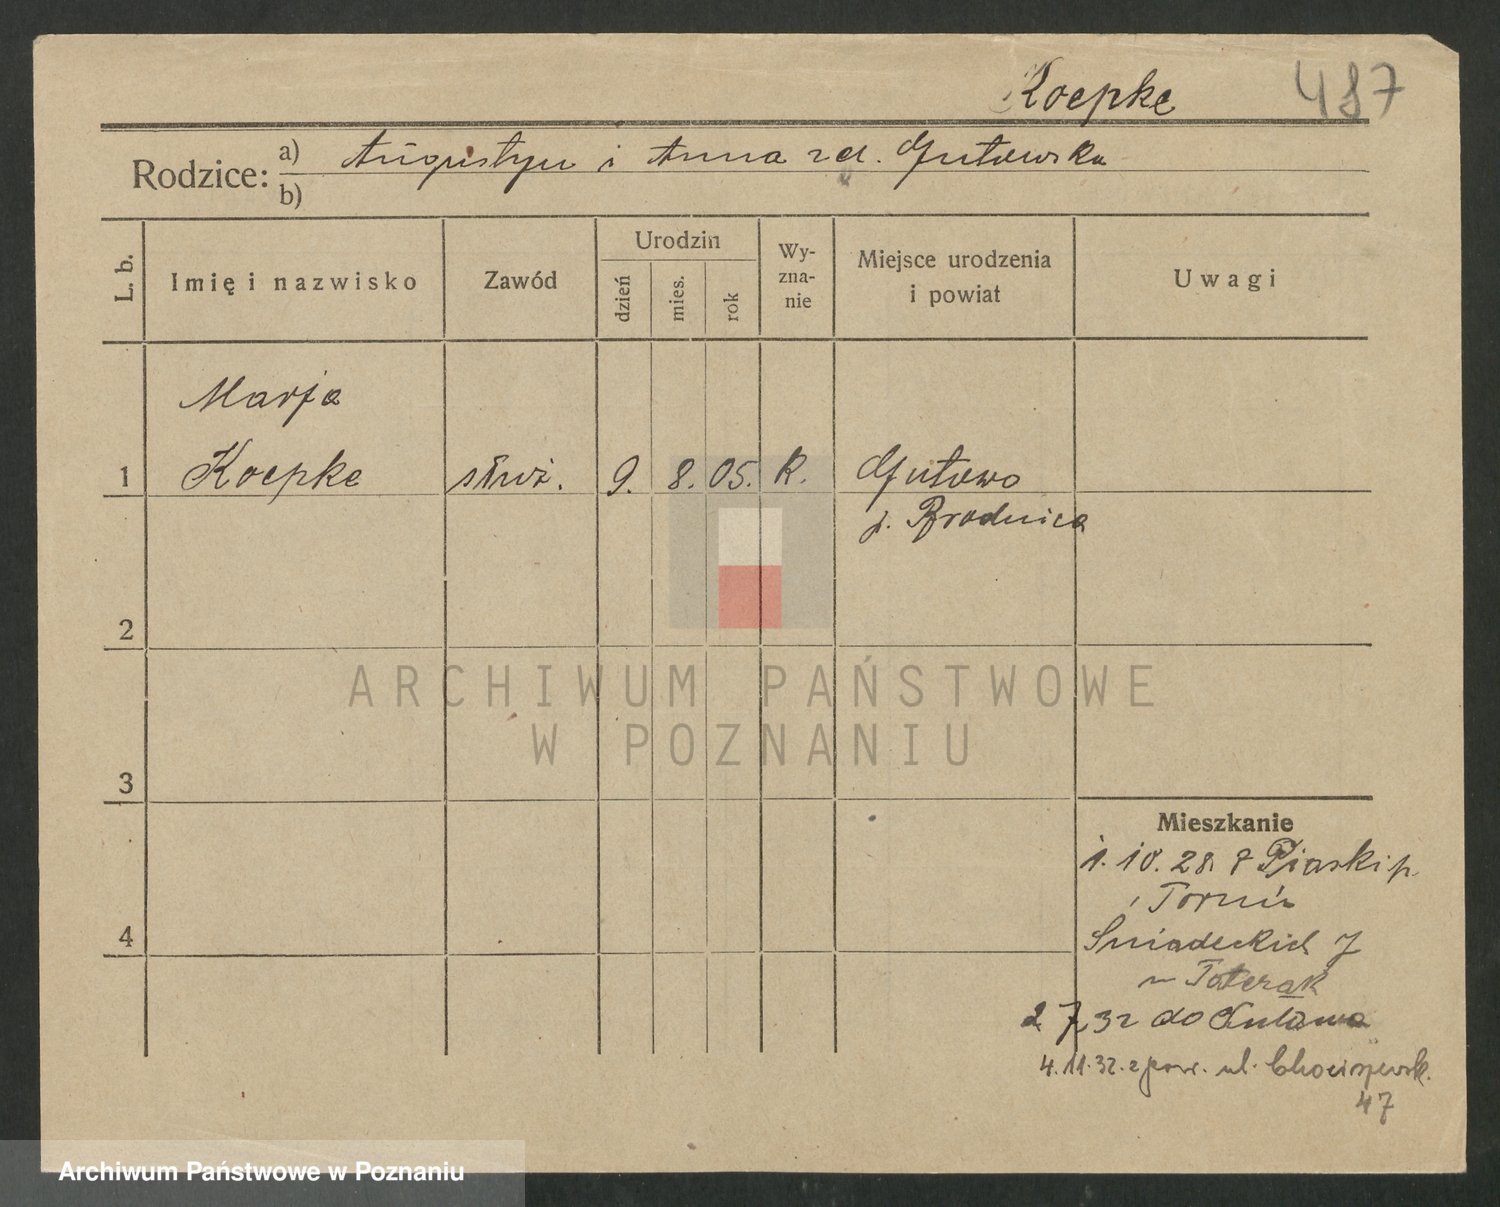 Koepke 487
Rodzice: a) Augustyn i Anna zd. Gutowska
b)
L. b. Imię i nazwisko Zawód Urodzin dzień mies. rok Wy-zna-nie Miejsce urodzenia i powiat Uwagi
Marja
1 Koepke służ. 9. 8. 05. R. Gutowo
p. Brodnica
2
3
4
Mieszkanie
1.10.28. z Piaski p.
Toruń
Śniadeckich 7
2 7 32 do Gutowa
4.11.32. z pow. ul. Chociszewsk.
47
ARCHIWUM PAŃSTWOWE
W POZNANIU
Archiwum Państwowe w Poznaniu